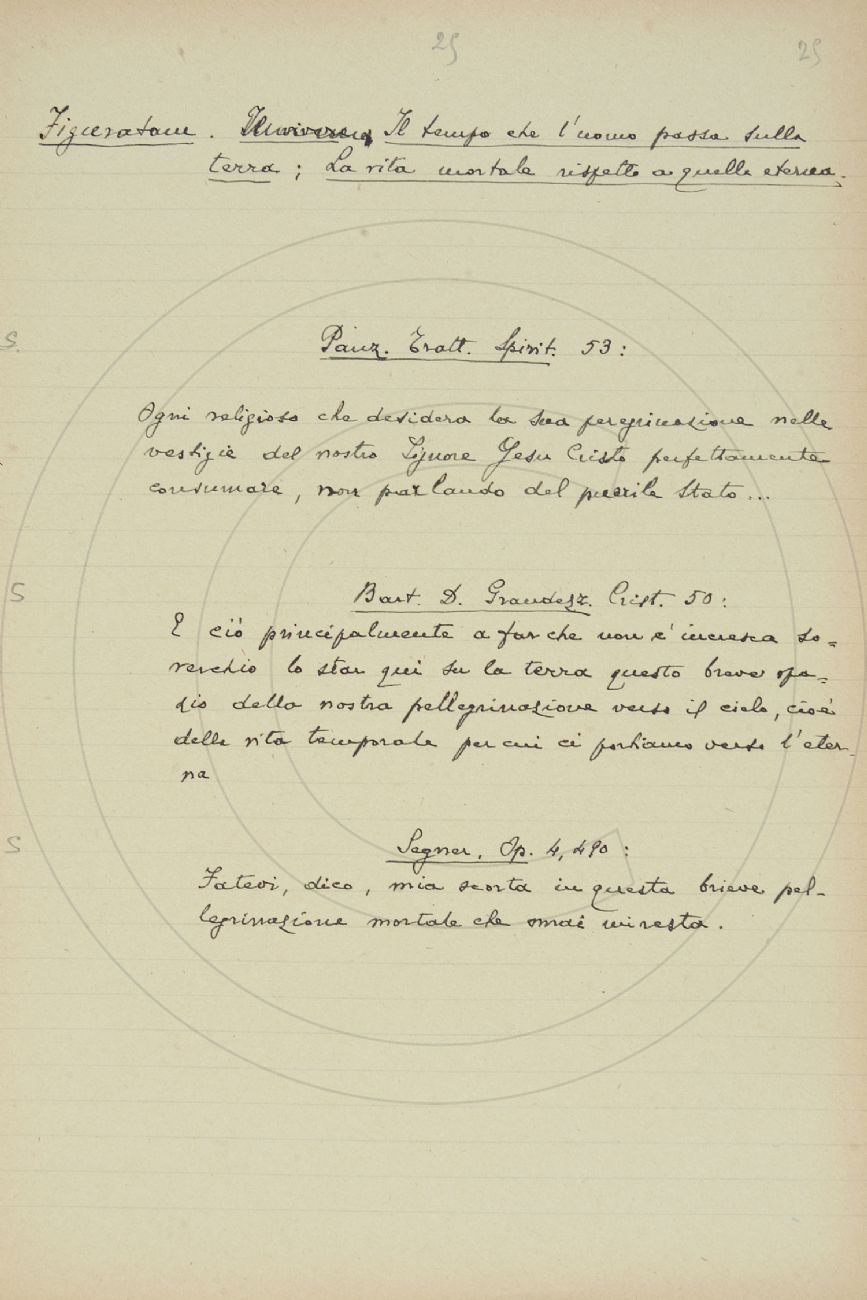 25 25
Figuratam. Il vivere, Il tempo che l'uomo passa sulla
terra; La vita mortale rispetto a quella eterna.
S.
Panz. Tratt. Spirit. 53:
Ogni religioso che desidera la sua peregrinazione nelle
vestigie del nostro Signore Jesu Cristo perfettamente
consumare, non parlando del puerile stato...
S
Bart. D. Grandezz. Crist. 50:
E ciò principalmente a far che non c'incresca so=
verchio lo star qui su la terra questo breve spa=
zio della nostra pellegrinazione verso il cielo, cioè
della vita temporale per cui ci portiamo verso l'eter-
na
S
Segner. Op. 4, 490:
Fatevi, dico, mia scorta in questa brieve pel-
legrinazione mortale che omai mi resta.